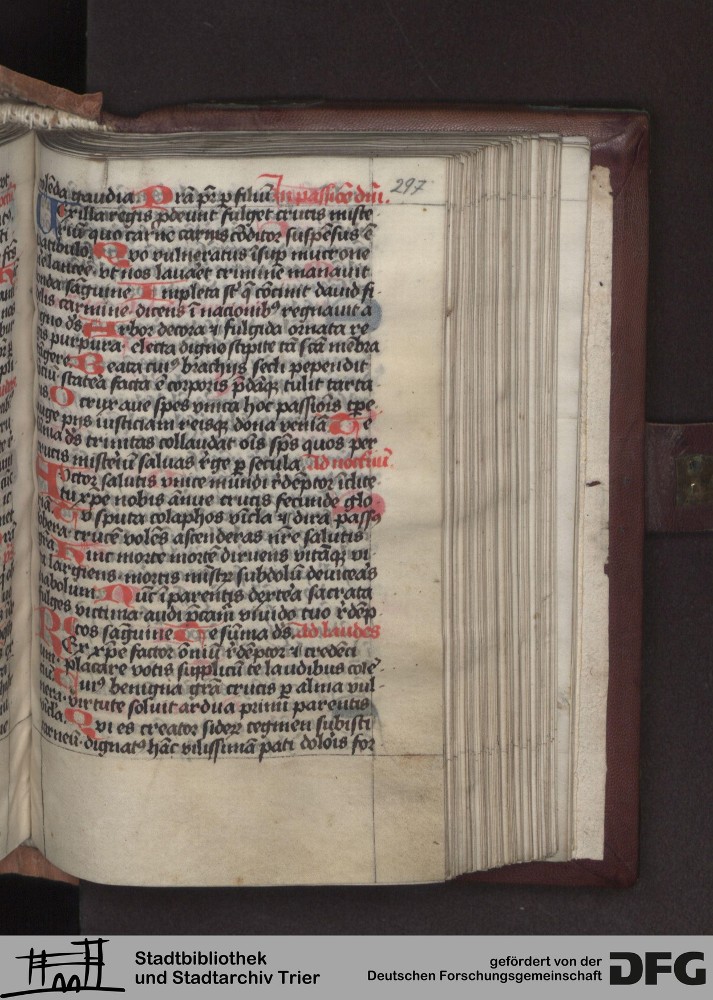 297
gaudia Pra pr p filiu In passioe dni.
Vexilla regis pdeunt fulget crucis miste
riu quo carne carnis coditor suspesus e
patibulo Quo vulneratus isup mucrone
lancee ut nos lavaet crimine manavit
unda saguine Impleta st q cocinit david fi
delis carmine dicens i nacionib regnavit a
ligno ds Arbor decora & fulgida ornata re
gis purpura electa digno stipite ta sca mebra
tangere Beata cui brachijs secli pependit
statea facta e corporis pdaq tulit tarta
O crux ave spes unica hoc passiois tpe
auge pijs iusticiam reisq dona venia Te
suma ds trinitas collaudat ois sps quos per
crucis misteriu salvas rge p secula Ad nocturnu
Auctor salutis unice mundi rdeptor iclite
tu xpe nobis annue crucis fecunde glo
Tu sputa colaphos vicla & dira passus
cruce voles ascenderas nre salutis
Hinc morte morte diruens vitaq vi
largiens mortis mistr subdolu deviceas
diabolum Nuc i parentis dextea sacrata
fulges victima audi pcam vivido tuo rdep
tos saguine Te suma ds. Ad laudes
Rex xpe factor oniu rdeptor & credeci
placare votis supplicu te laudibus cole
Cuius benigna gra crucis p alma vul
nera virtute solvit ardua primi parentis
vicla. Qvi es creator sider tegmen subisti
carneu dignat hac vilissima pati dolois for
Stadtbibliothek
und Stadtarchiv Trier
gefördert von der
Deutschen Forschungsgemeinschaft
DFG